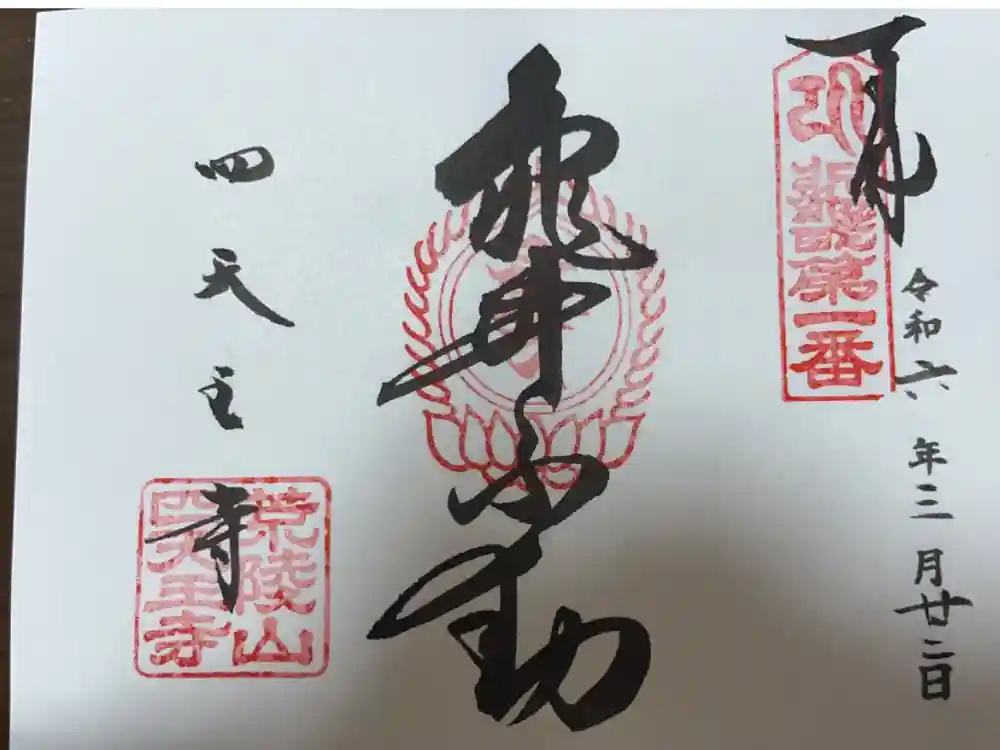 奉拝
第一番
令和六年三月廿二日
亀井不動
四天王寺
荒陵山
四天王寺